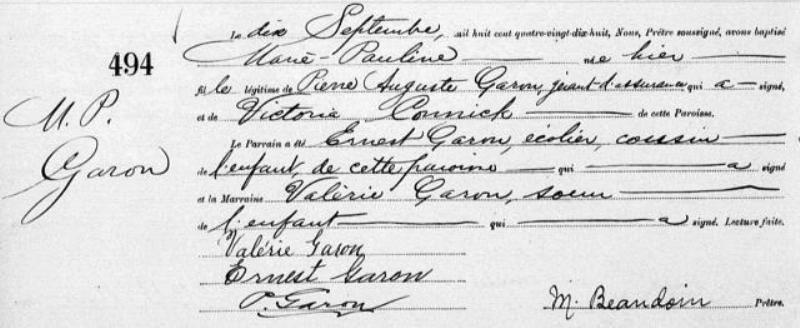 494
M. P.
Garon
Le dix Septembre, mil huit cent quatre-vingt-dix-huit, Nous, Prêtre soussigné, avons baptisé
Marie-Pauline née hier
fille légitime de Pierre Auguste Garon, gérant d'assurance qui a signé,
et de Victoria Connick de cette Paroisse.
Le Parrain a été Ernest Garon, écolier, cousin
de l'enfant, de cette paroisse qui a signé
et la Marraine Valérie Garon, soeur
de l'enfant qui a signé. Lecture faite.
Valérie Garon
Ernest Garon
P. Garon
M. Beaudoin Prêtre.